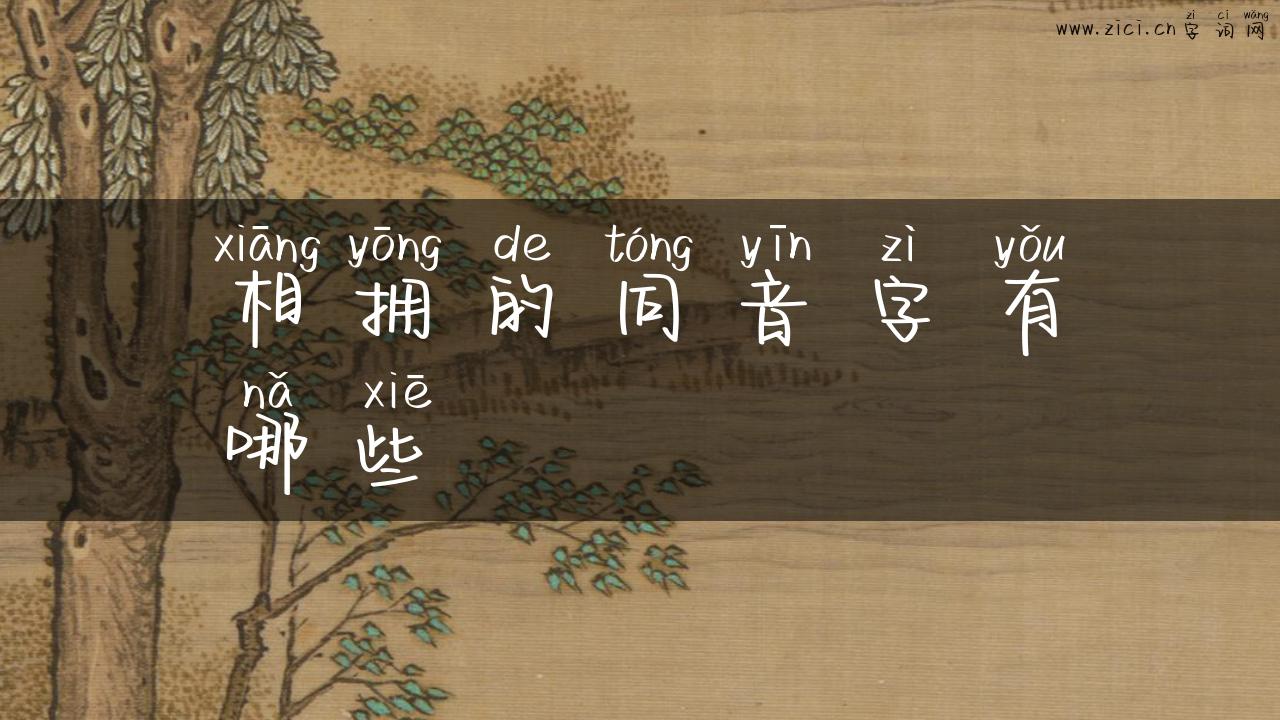 zì cí wǎng
www.zici.cn 字词网
xiāng yōng de tóng yīn zì yǒu
相拥的同音字有
nǎ xiē
哪些